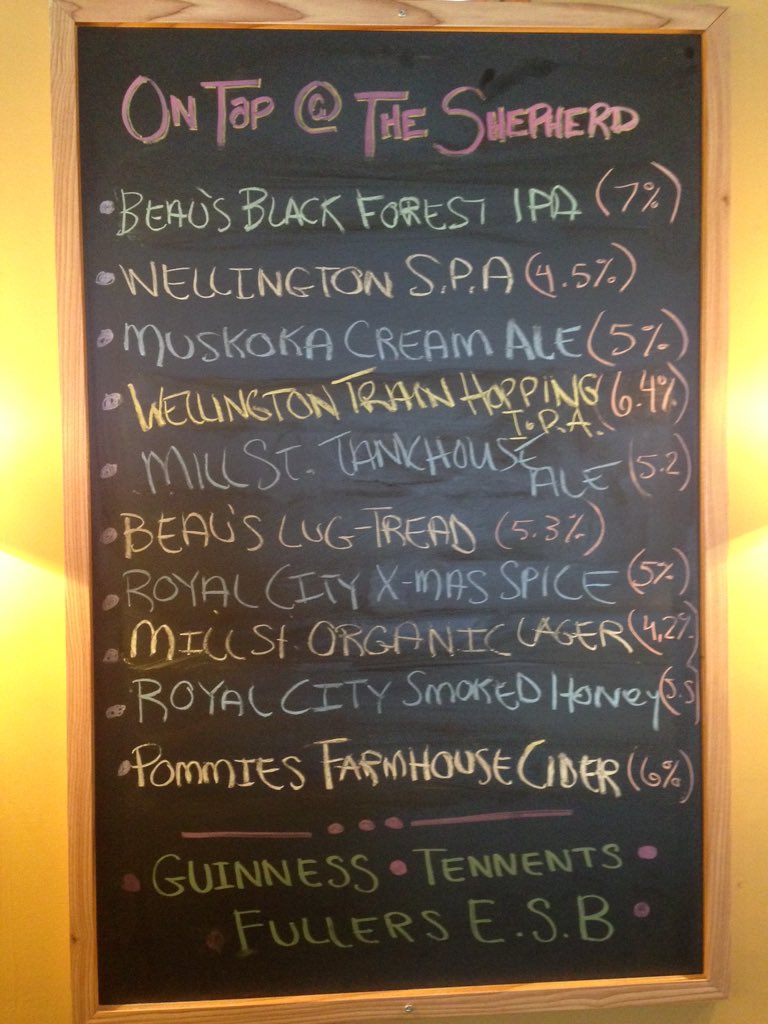 On Tap @ The Shepherd
Beau's Black Forest IPA (7%)
Wellington S.P.A (4.5%)
Muskoka Cream Ale (5%)
Wellington Train Hopping (6.4%)
I.P.A.
Mill St. Tankhouse
Ale (5.2)
Beau's Lug-Tread (5.3%)
Royal City X-mas Spice (5%)
Mill St Organic Lager (4.2%)
Royal City Smoked Honey (5.5)
Pommies Farmhouse Cider (6%)
Guinness • Tennents •
Fullers E.S.B •